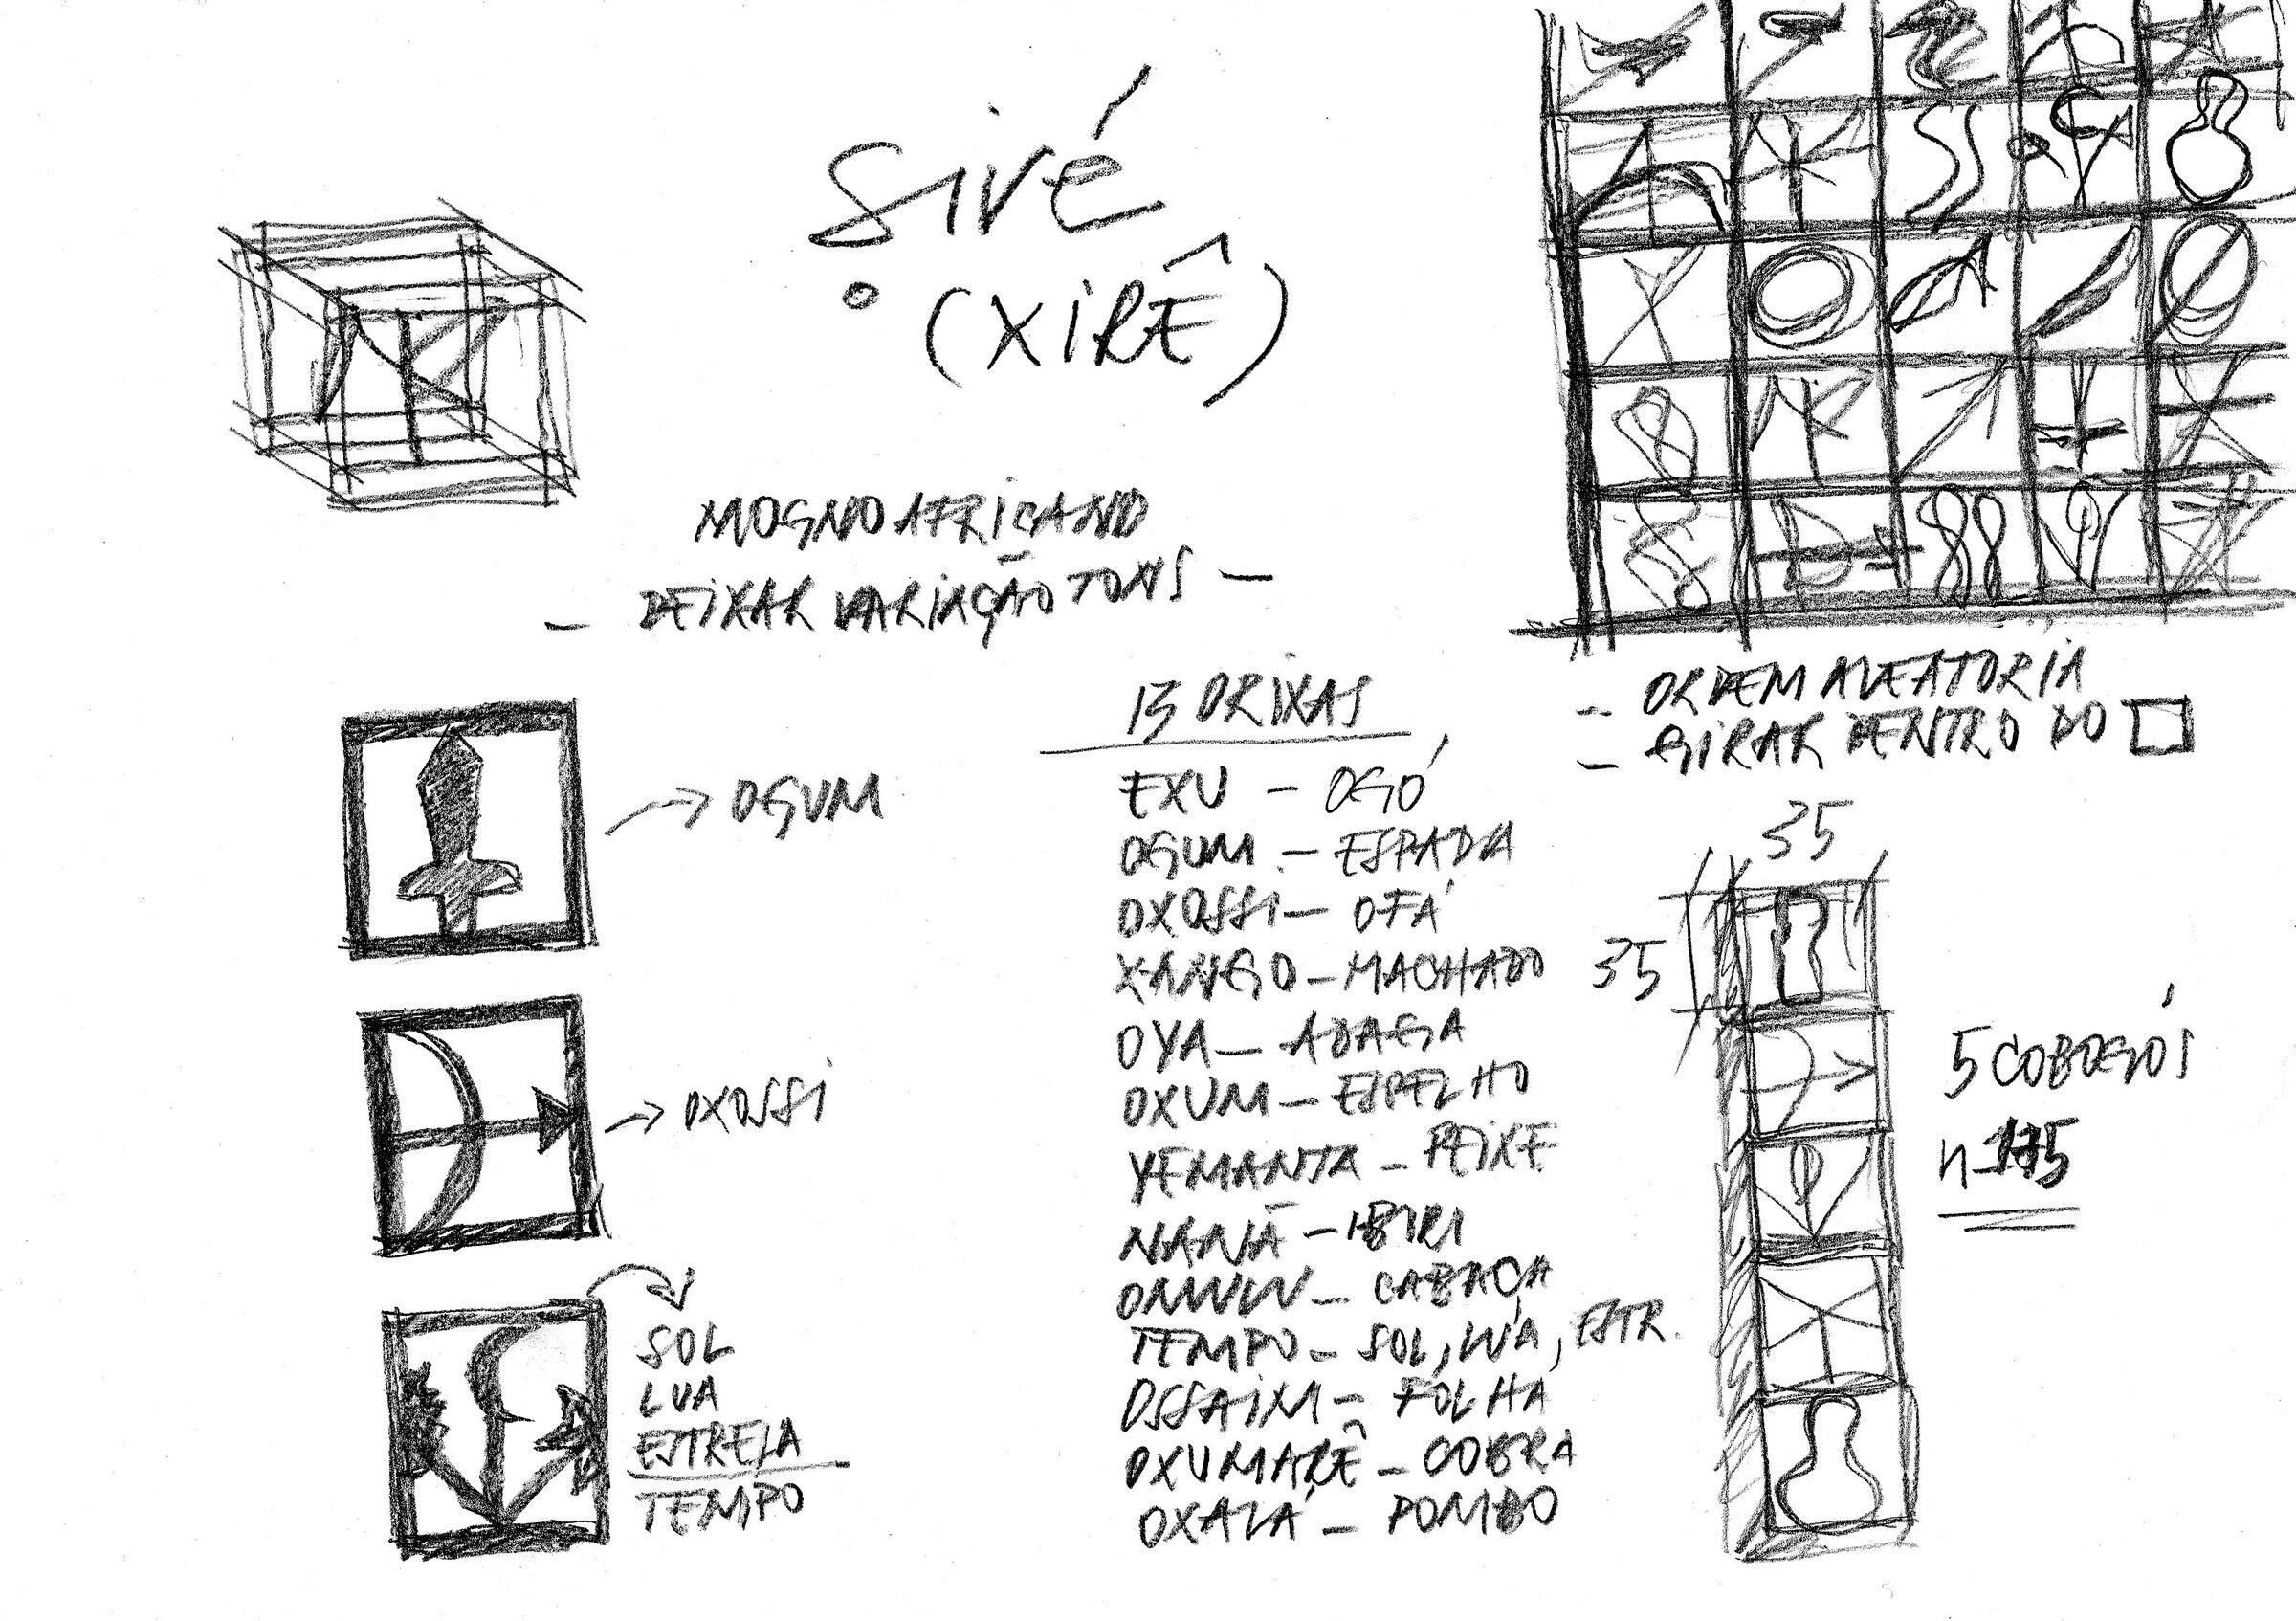 Sivé
(XIRÊ)
MOGNO AFRICANO
- DEIXAR VARIAÇÃO TONS -
- ORDEM ALEATORIA
- GIRAR DENTRO DO
→ OGUM
→ OXOSSI
SOL
LUA
ESTRELA
TEMPO
13 ORIXAS
EXU - OGÓ
OGUM - ESPADA
OXOSSI - OFÁ
XANGO - MACHADO
OYA - ADAGA
OXUM - ESPELHO
YEMANJA - PEIXE
NANÃ - IBIRI
OMULU - CABAÇA
TEMPO - SOL, LUA, ESTR.
OSSAIM - FOLHA
OXUMARÊ - COBRA
OXALÁ - POMBO
35
35
5 COBOGÓS
175